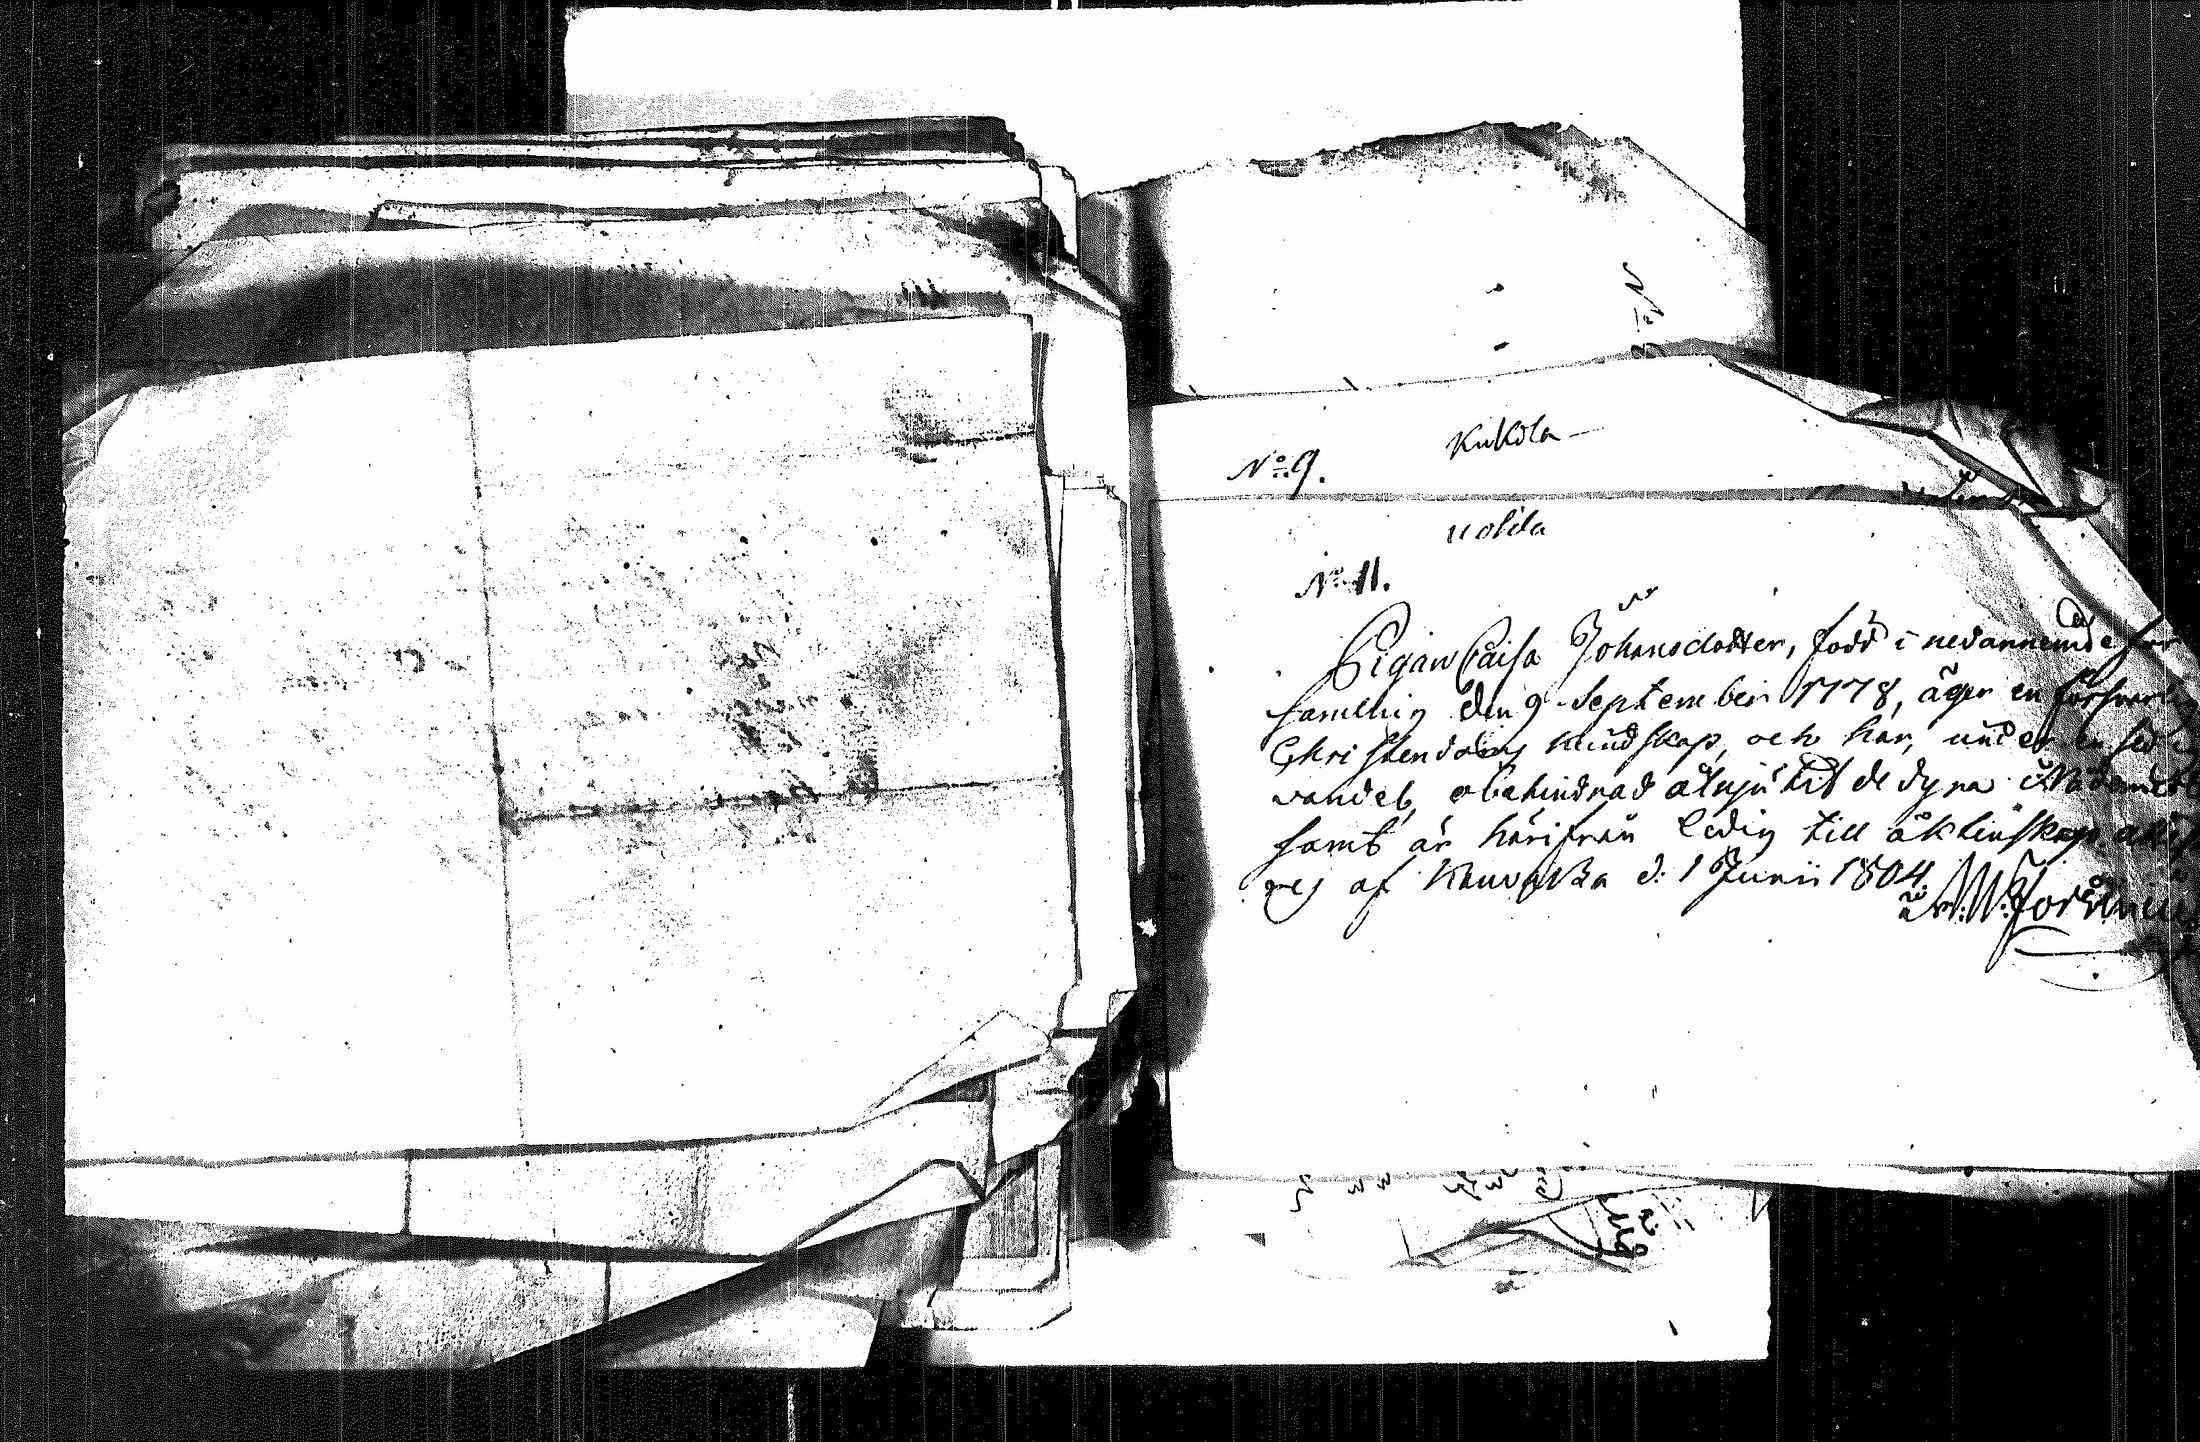 N:o 3
Kukola
N:o 9.
uolila
N:o 11.
Pigan Caisa Johansdotter, född i nedannemde för
samling den 9 September 1778, äger en försvarlig
Christendoms kundskap, och har, under en sedig
vandel, obehindrad åtnjutit de dyra Nådemedel
samt är härifrån ledig till äktenskap,
af d: 1 Junii 1804.